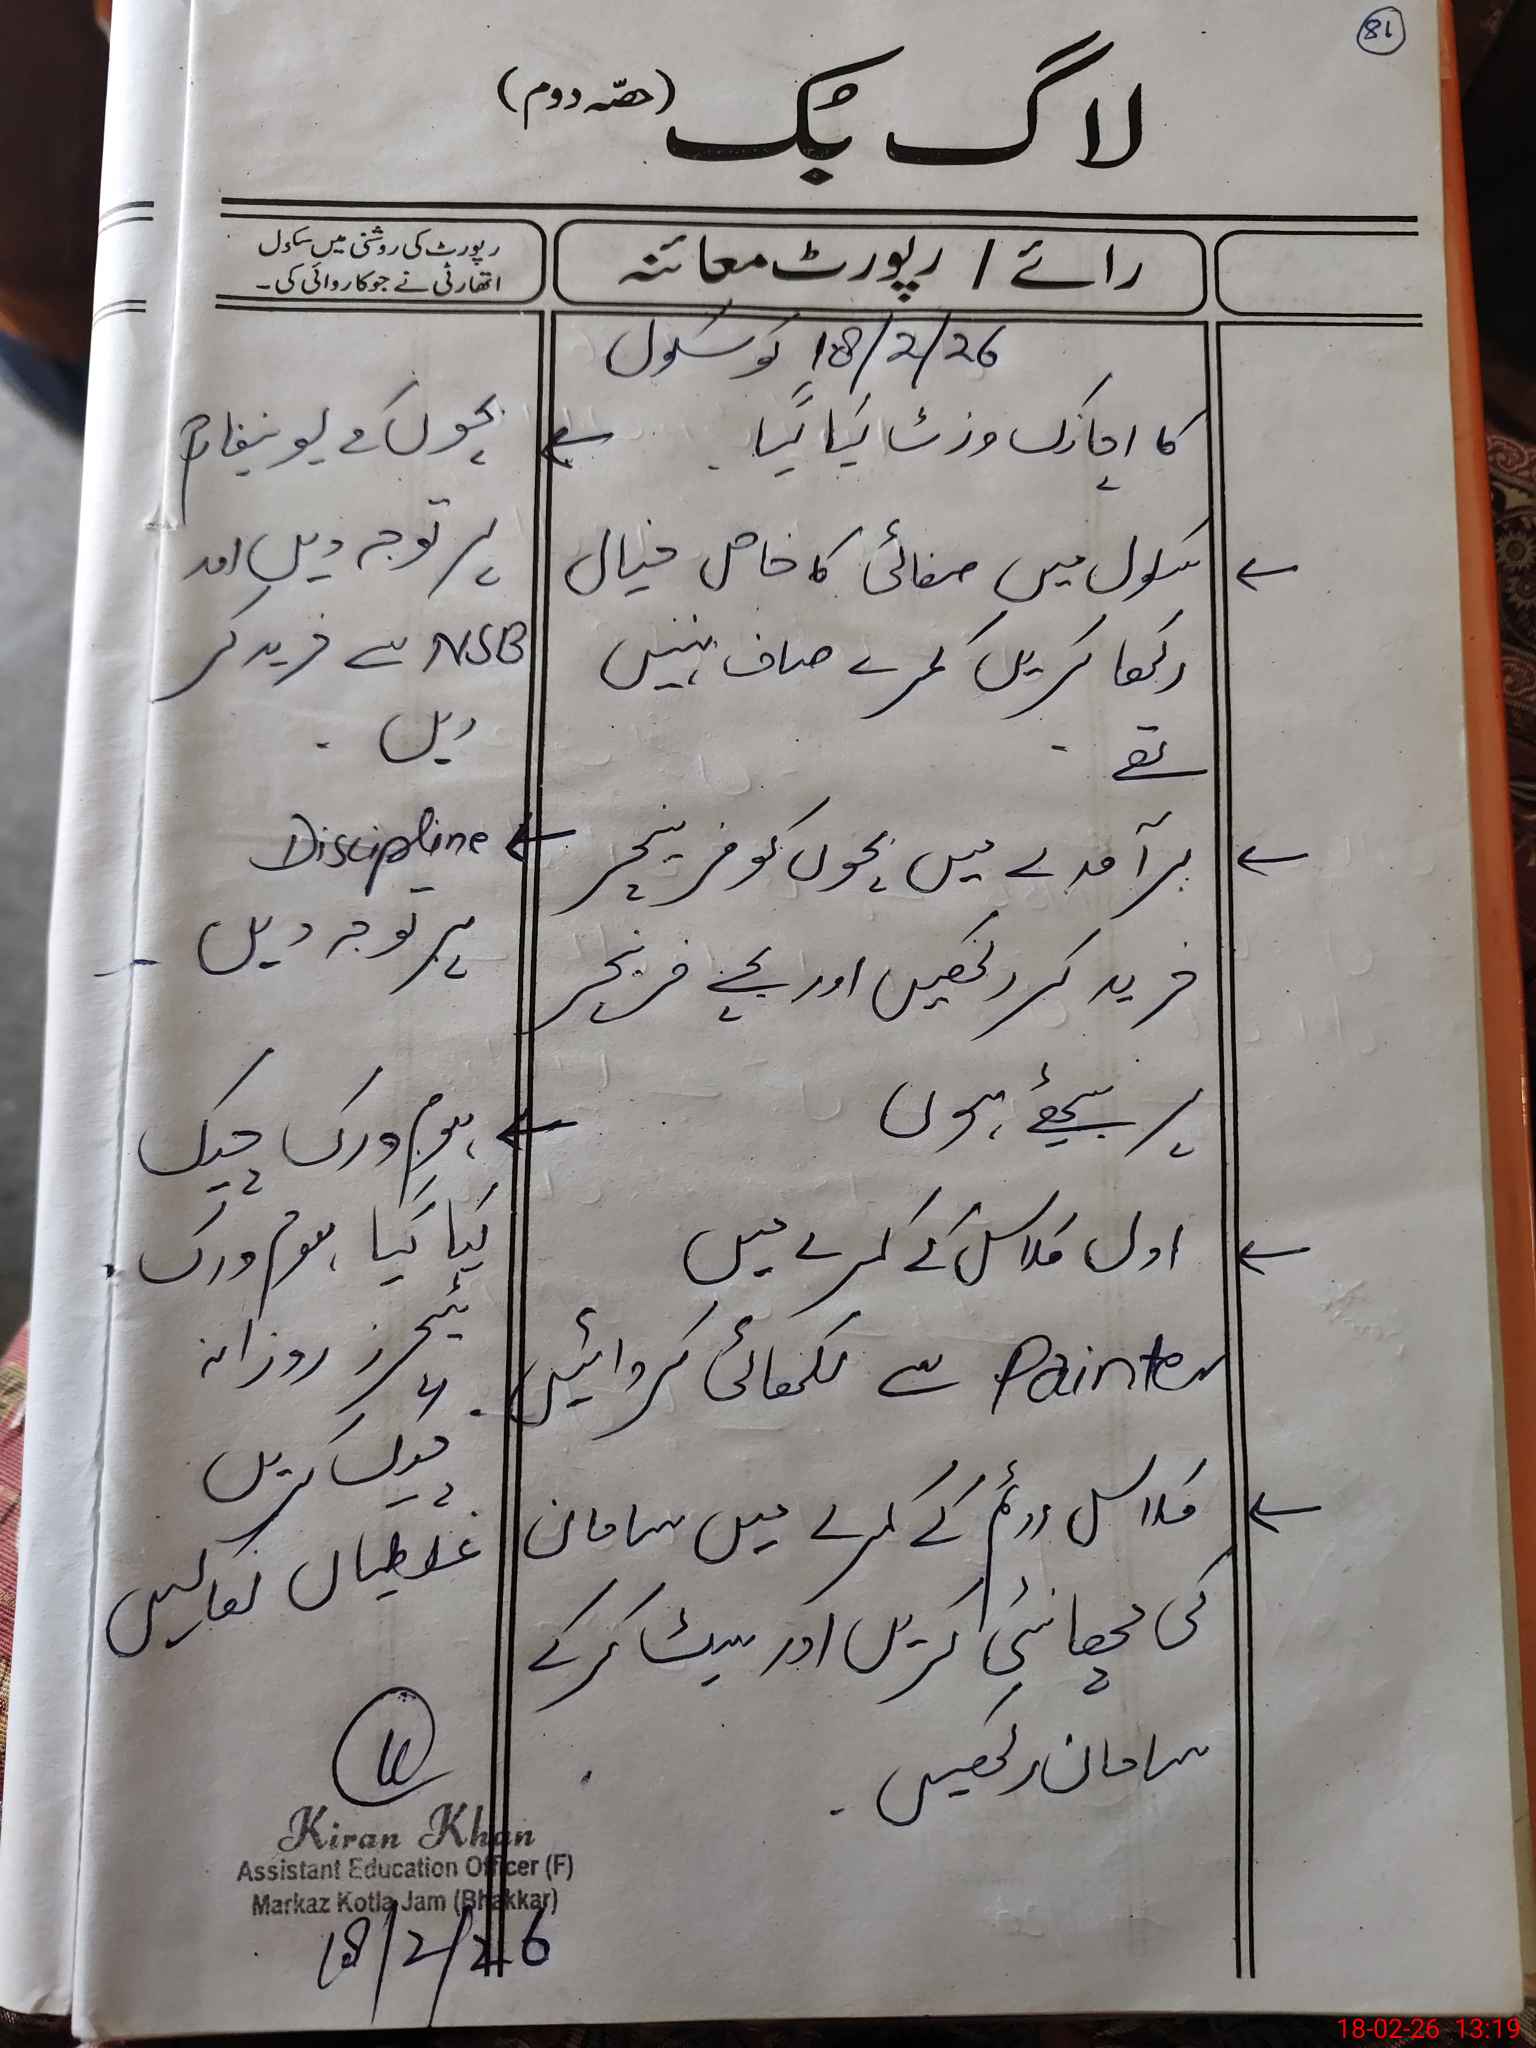 81
لاگ بُک (حصّہ دوم)
رائے / رپورٹ معائنہ
رپورٹ کی روشنی میں سکول
اتھارٹی نے جو کاروائی کی۔
18/2/26 کو سکول
کا اچانک وزٹ کیا گیا۔
← سکول میں صفائی کا خاص خیال
رکھا کریں کمرے صاف نہیں
تھے۔
← برآمدے میں بچوں کو فرنیچر
خرید کر رکھیں اور بچے فرنیچر
پر بیٹھے ہوں
← اول کلاس کے کمرے میں
Painter سے لکھائی کروائیں۔
← کلاس دوئم کے کمرے میں سامان
کی چھانٹی کریں اور سیٹ کر کے
سامان رکھیں۔
← بچوں کے یونیفارم
پر توجہ دیں اور
NSB سے خرید کر
دیں۔
← Discipline
پر توجہ دیں۔
← ہوم ورک چیک
کیا گیا، ہوم ورک
ٹیچرز روزانہ
چیک کریں
غلطیاں نکالیں
Kiran Khan
Assistant Education Officer (F)
Markaz Kotla Jam (Bhakkar)
18/2/26
18-02-26 13:19